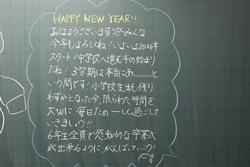 HAPPY NEW YEAR!!
おはようございます
今年もよろしくね!いよいよ2024
スタート!中学校へ進む年の始まり
だね!3学期は本当にあ………と
いう間です!小学校生活も残り
わずかとなった今、限られた時間を
大切に 毎日たの〜しく過ごして
いきましょう!!
6年生全員で感動的な卒業式
が出来るように、がんばっていこう!